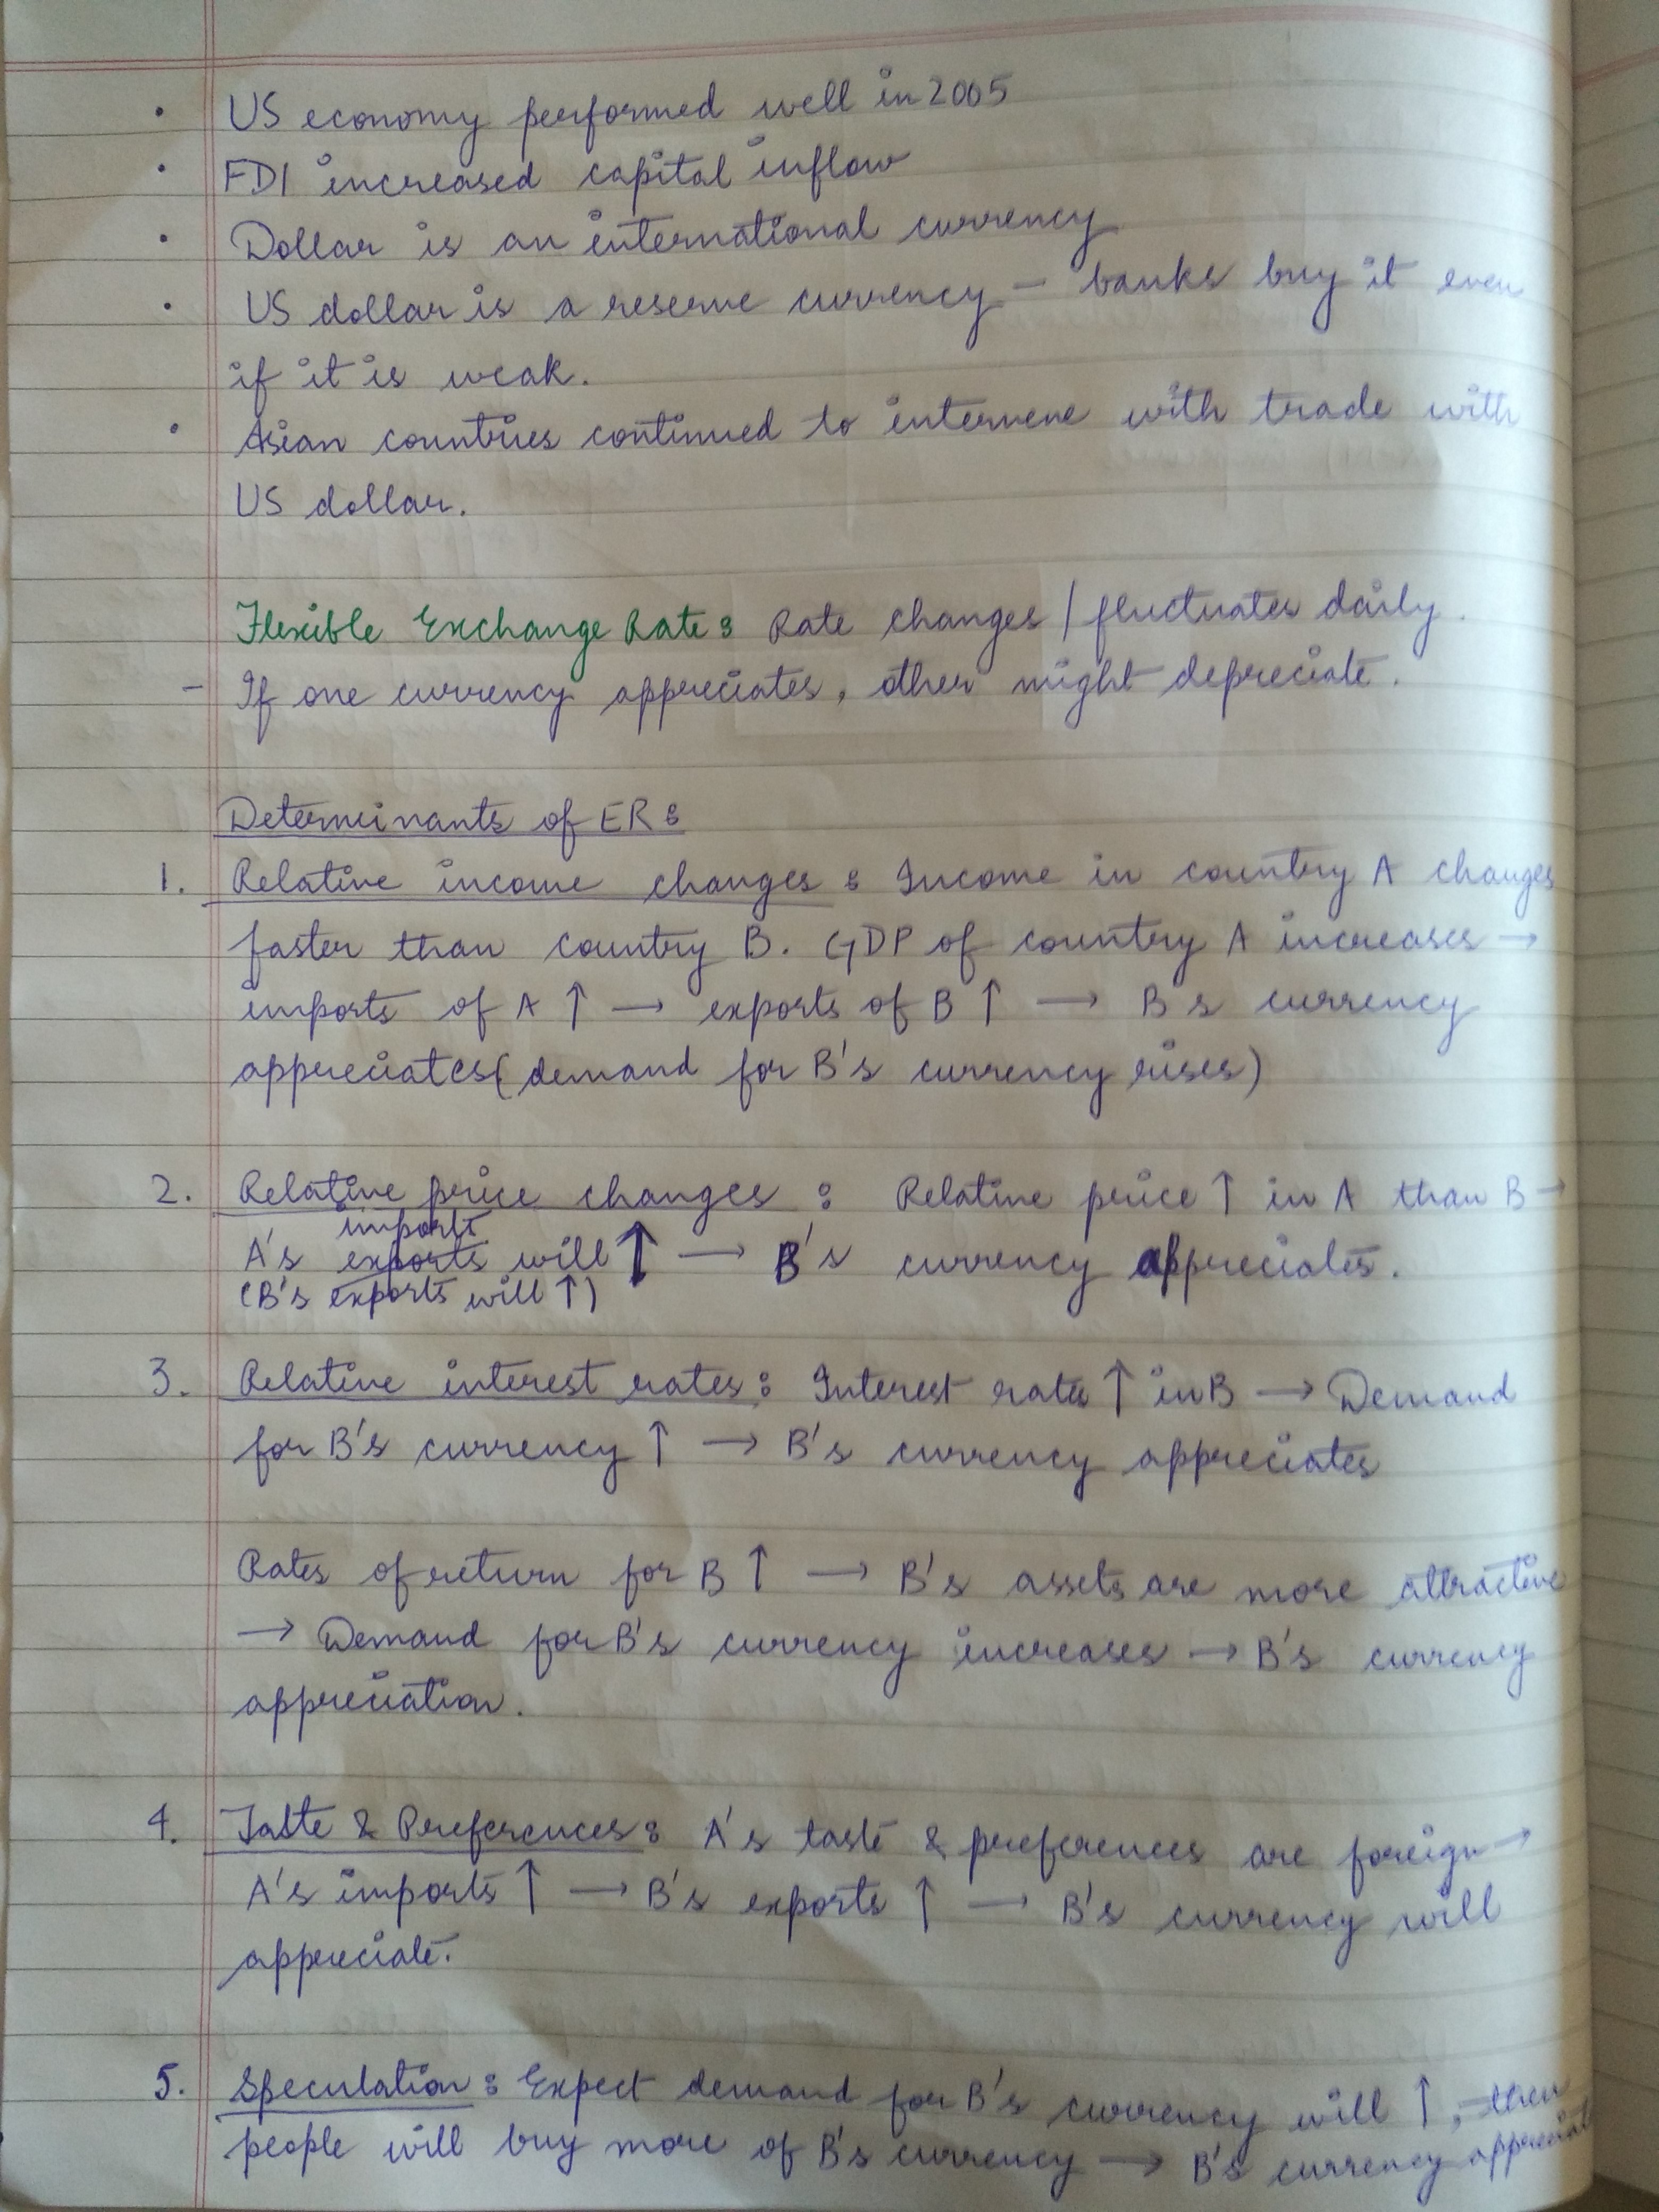 • US economy performed well in 2005
• FDI increased capital inflow
• Dollar is an international currency
• US dollar is a reserve currency – banks buy it even
if it is weak.
• Asian countries continued to intervene with trade with
US dollar.
Flexible Exchange Rate : Rate changes / fluctuates daily.
– If one currency appreciates, other might depreciate.
Determinants of ER :
1. Relative income changes : Income in country A changes
faster than country B. GDP of country A increases →
imports of A ↑ → exports of B ↑ → B's currency
appreciates (demand for B's currency rises)
2. Relative price changes : Relative price ↑ in A than B →
imports
A's exports will ↑ → B's currency appreciates.
(B's exports will ↑)
3. Relative interest rates : Interest rates ↑ in B → Demand
for B's currency ↑ → B's currency appreciates
Rates of return for B ↑ → B's assets are more attractive
→ Demand for B's currency increases → B's currency
appreciation.
4. Taste & Preferences : A's taste & preferences are foreign →
A's imports ↑ → B's exports ↑ → B's currency will
appreciate.
5. Speculation : Expect demand for B's currency will ↑, then
people will buy more of B's currency → B's currency appreciat